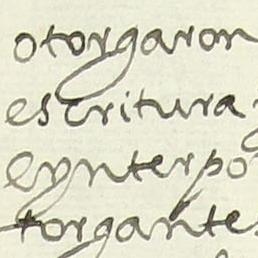 otorgaron
escritura
eynterpo
torgantes